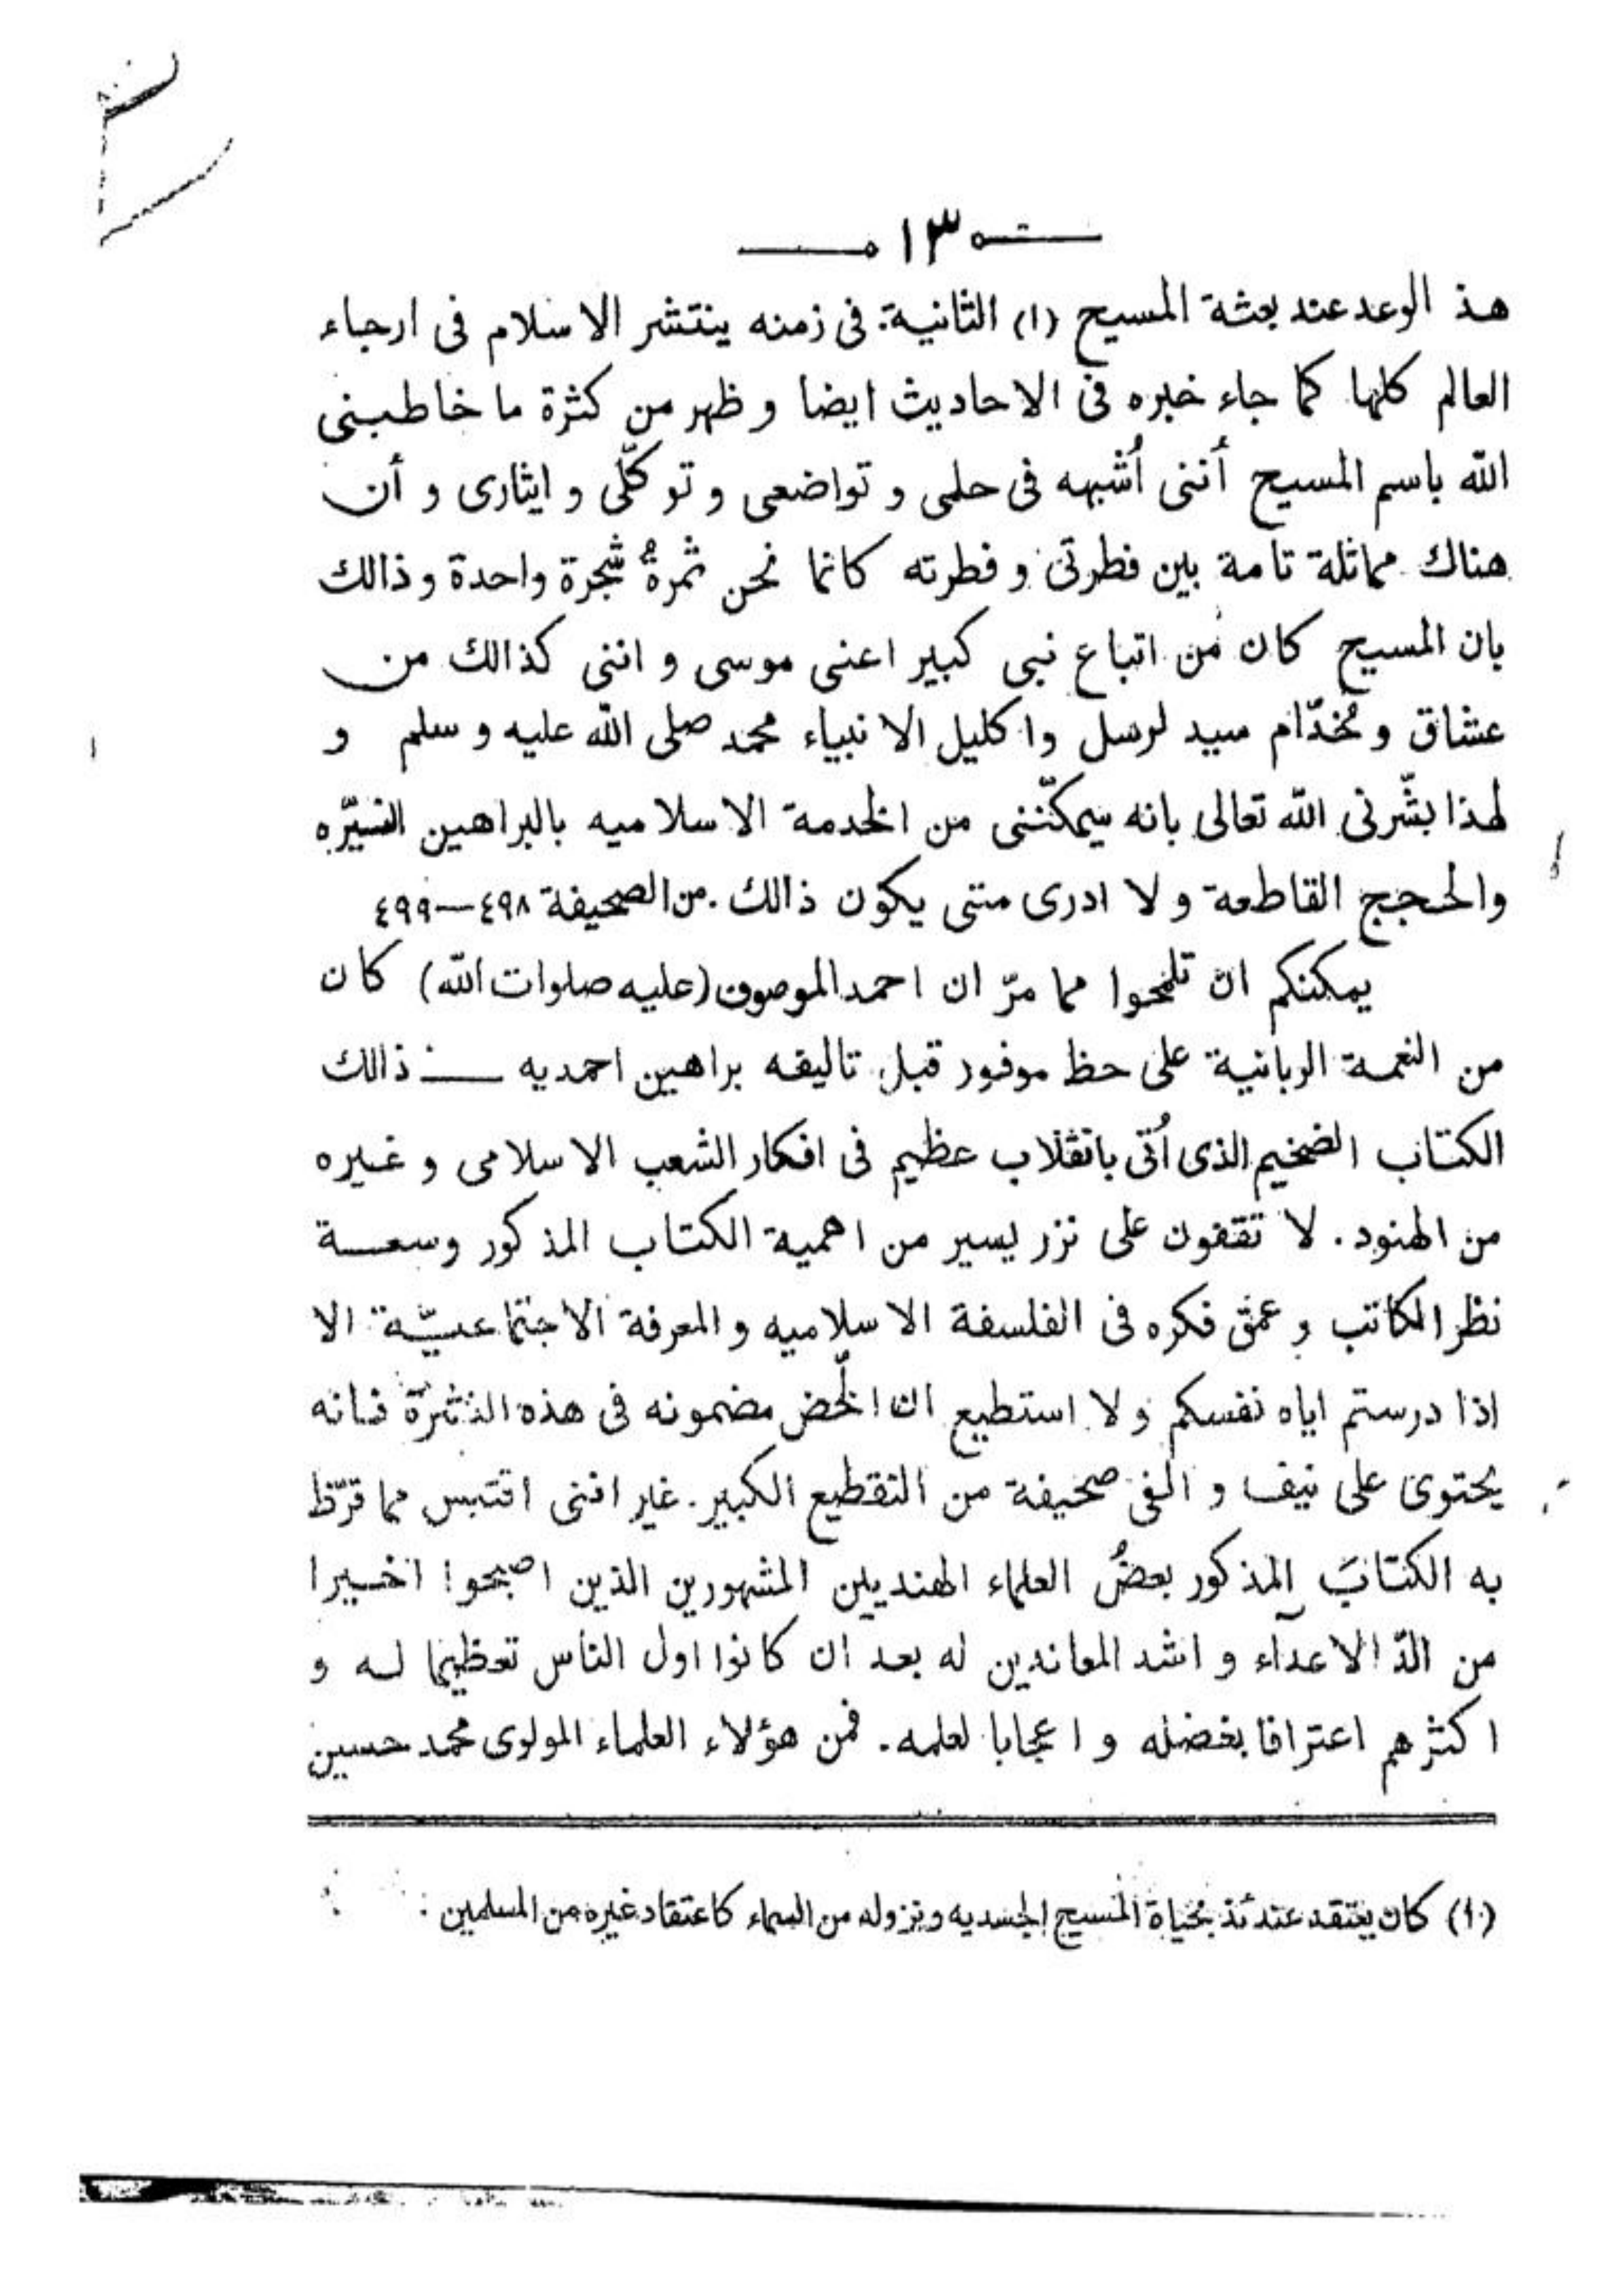 ١٣
هذ الوعد عند بعثة المسيح (١) الثانية. فى زمنه ينتشر الاسلام فى ارجاء
العالم كلها كما جاء خبره فى الاحاديث ايضا و ظهر من كثرة ما خاطبنى
الله باسم المسيح أننى أشبهه فى حلمى و تواضعى و توكّلى و ايثارى و أن
هناك مماثلة تامة بين فطرتى و فطرته كانما نحن ثمرةُ شجرة واحدة وذالك
بان المسيح كان من اتباع نبى كبير اعنى موسى و اننى كذالك من
عشاق و خُدّام سيد لرسل واكليل الانبياء محمد صلى الله عليه و سلم و
لهذا بشّرنى الله تعالى بانه سيمكّننى من الخدمة الاسلاميه بالبراهين النيّره
والحجج القاطعة و لا ادرى متى يكون ذالك. من الصحيفة ٤٩٨—٤٩٩
يمكنكم ان تلمحوا مما مرّ ان احمد الموصوف (عليه صلوات الله) كان
من النعمة الربانية على حظ موفور قبل تاليفه براهين احمديه — ذالك
الكتاب الضخيم الذى أتى بانقلاب عظيم فى افكار الشعب الاسلامى و غيره
من الهنود. لا تقفون على نزر يسير من اهمية الكتاب المذكور وسعة
نظر الكاتب و عمق فكره فى الفلسفة الاسلاميه و المعرفة الاجتماعيّة الا
اذا درستم اياه نفسكم و لا استطيع ان الخّض مضمونه فى هذه النثرة فانه
يحتوى على نيف و الفى صحيفة من التقطيع الكبير. غير اننى اقتبس مما قرّظ
به الكتابَ المذكور بعضُ العلماء الهنديين المشهورين الذين اصبحوا اخيرا
من الدّ الاعدآء و اشد المعاندين له بعد ان كانوا اول الناس تعظيما له و
اكثرهم اعترافا بفضله و اعجابا لعلمه. فمن هؤلاء العلماء المولوى محمد حسين
(١) كان يعتقد عندئذ بحياة المسيح الجسديه و نزوله من السماء كاعتقاد غيره من المسلمين :